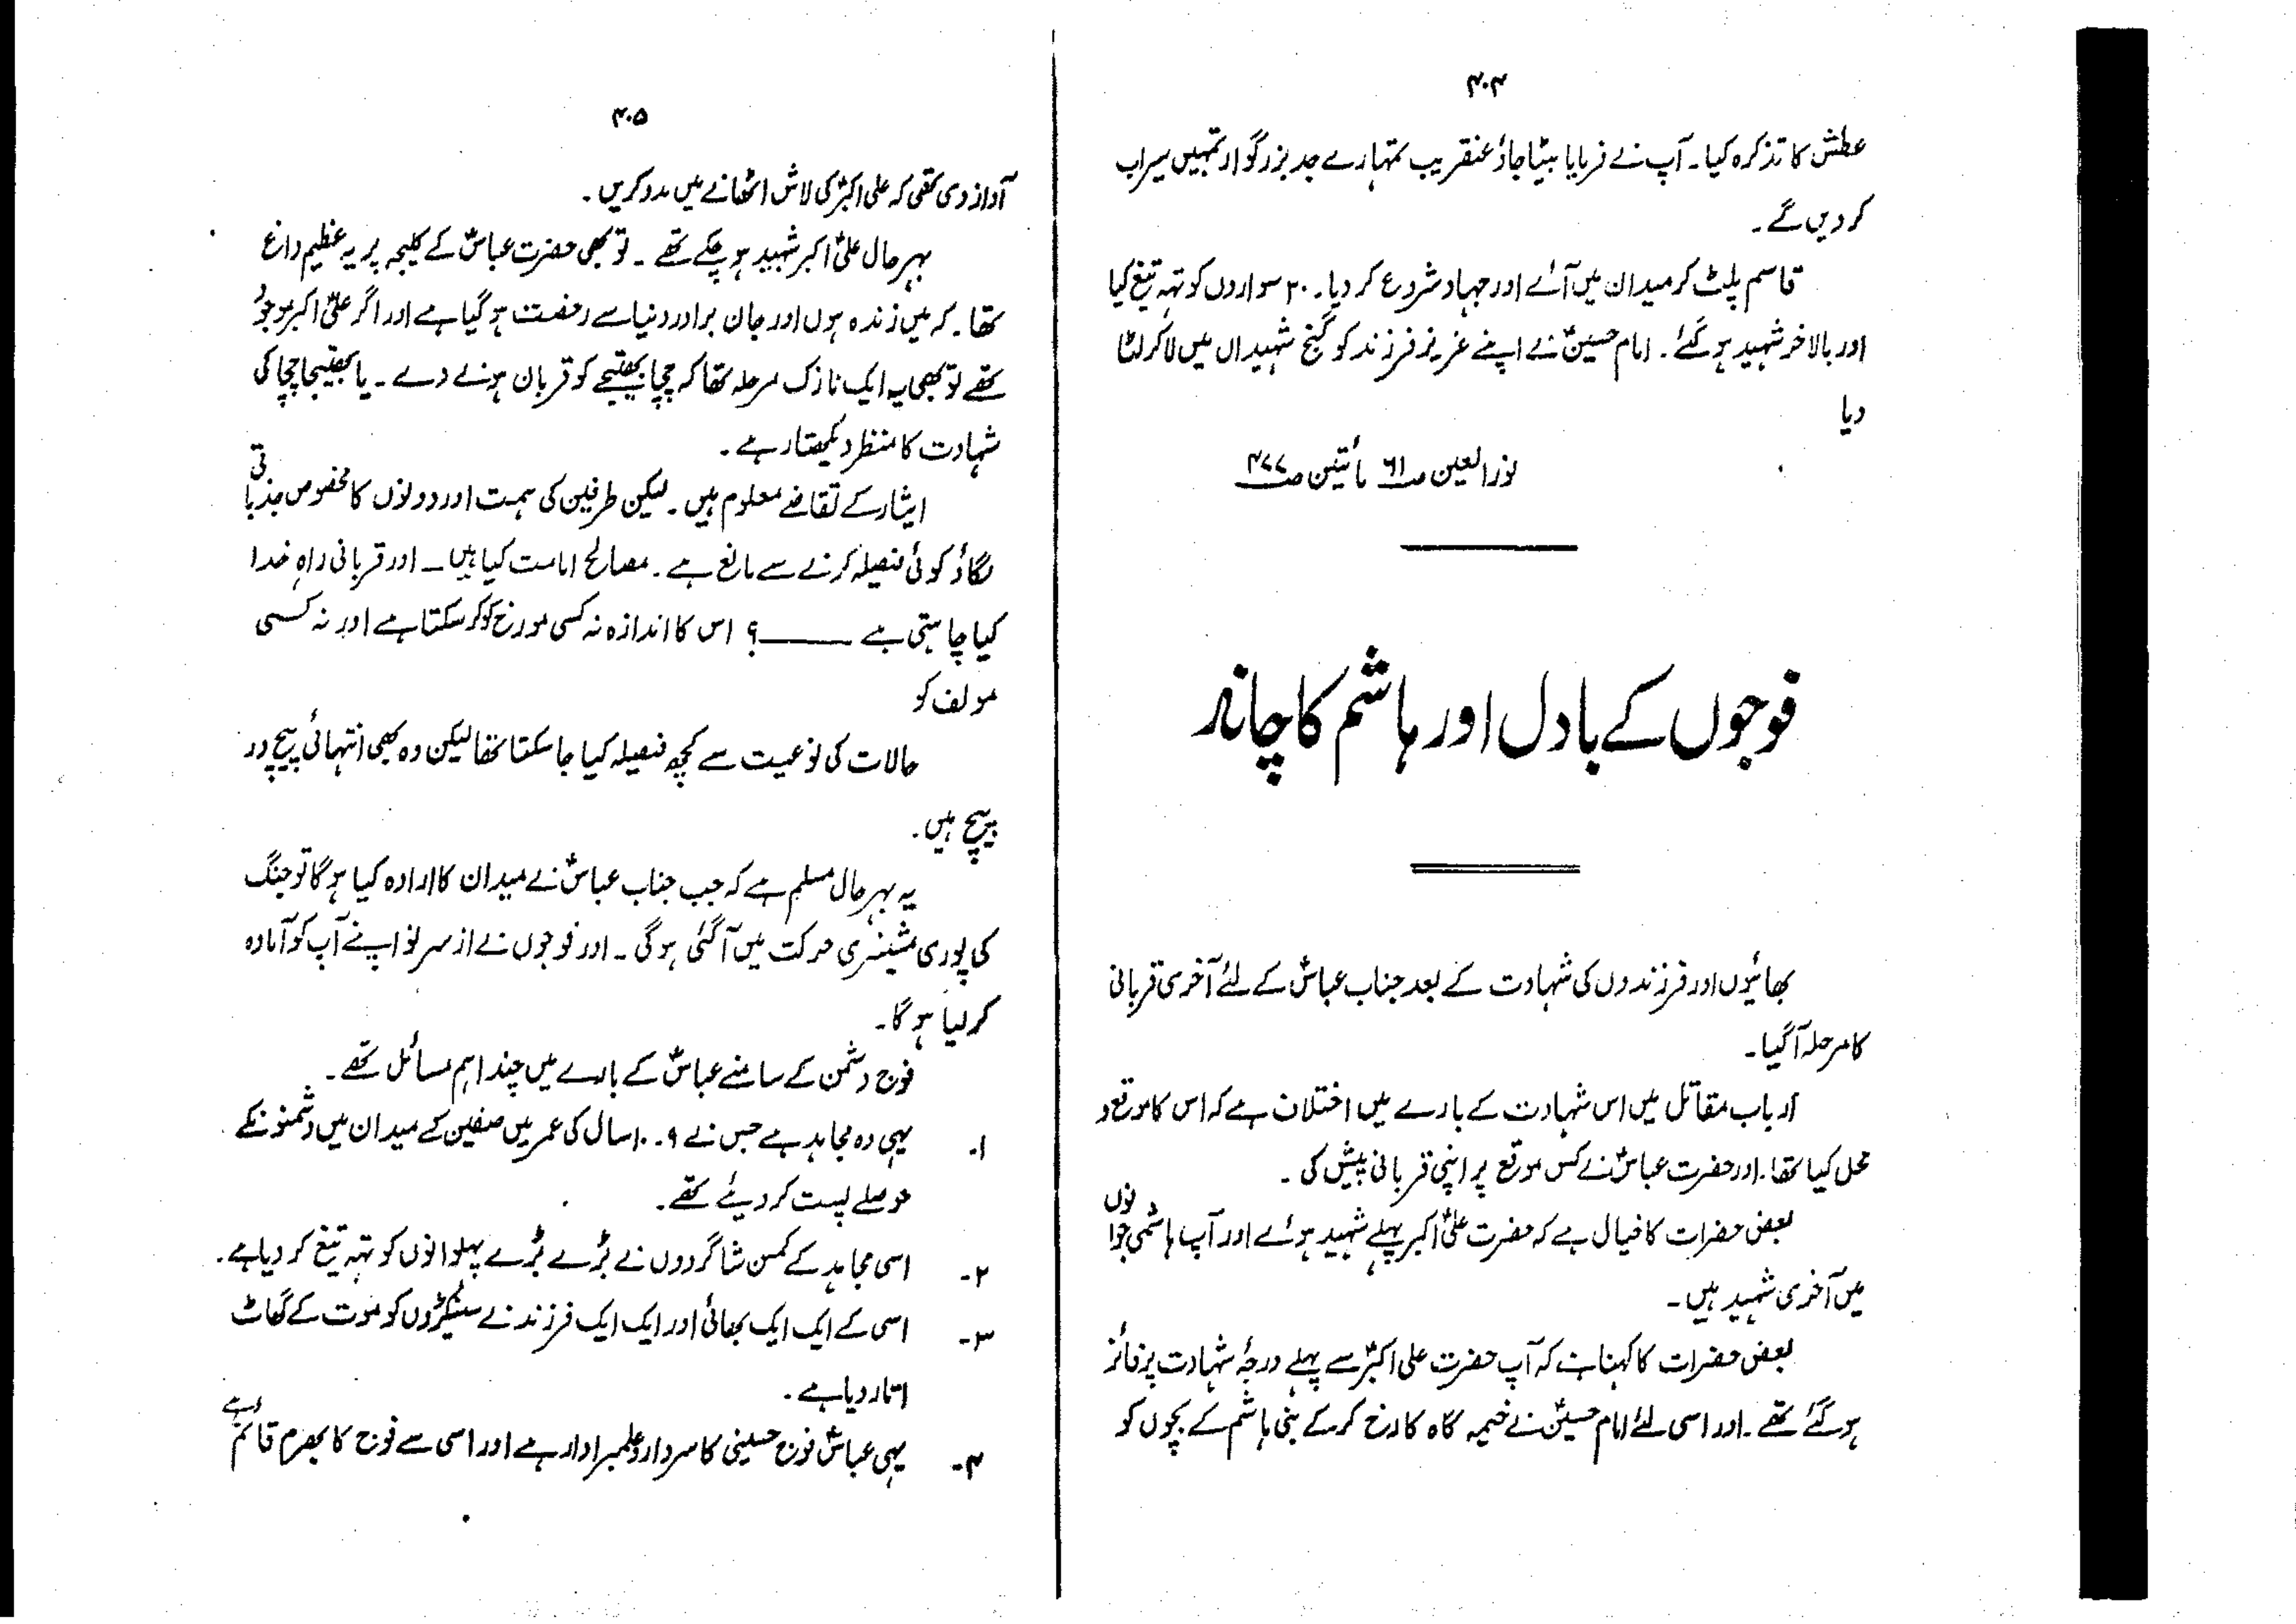 ۴۰۴
عطش کا تذکرہ کیا۔ آپ نے فرمایا بیٹا جاؤ عنقریب تمہارے جد بزرگوار تمہیں سیراب
کر دیں گے۔
قاسم پلٹ کر میدان میں آئے اور جہاد شروع کر دیا۔ ۲۰ سواروں کو تہہ تیغ کیا
اور بالاخر شہید ہو گئے۔ امام حسینؑ نے اپنے عزیز فرزند کو گنج شہیداں میں لا کر لٹا
دیا
نور العین صـ۶۱ مأتین صـ۴۷۷
فوجوں کے بادل اور ہاشم کا چاند
بھائیوں اور فرزندوں کی شہادت کے بعد جناب عباسؑ کے لئے آخری قربانی
کا مرحلہ آگیا۔
ارباب مقاتل میں اس شہادت کے بارے میں اختلاف ہے کہ اس کا موقع و
محل کیا تھا۔ اور حضرت عباسؑ نے کس موقع پر اپنی قربانی پیش کی۔
بعض حضرات کا خیال ہے کہ حضرت علیؑ اکبر پہلے شہید ہوئے اور آپ ہاشمی جوانوں
میں آخری شہید ہیں۔
بعض حضرات کا کہنا ہے کہ آپ حضرت علی اکبرؑ سے پہلے درجۂ شہادت پر فائز
ہو گئے تھے۔ اور اسی لئے امام حسینؑ نے خیمہ گاہ کا رخ کر کے بنی ہاشم کے بچوں کو
۴۰۵
آواز دی تھی کہ علی اکبرؑ کی لاش اٹھانے میں مدد کریں۔
بہر حال علیؑ اکبر شہید ہو چکے تھے۔ تو بھی حضرت عباسؑ کے کلیجہ پر یہ عظیم داغ
تھا۔ کہ میں زندہ ہوں اور جان برادر دنیا سے رخصت ہو گیا ہے اور اگر علیؑ اکبر موجود
تھے تو بھی یہ ایک نازک مرحلہ تھا کہ چچا بھتیجے کو قربان ہونے دے۔ یا بھتیجا چچا کی
شہادت کا منظر دیکھتا رہے۔
ایثار کے تقاضے معلوم ہیں۔ لیکن طرفین کی ہمت اور دونوں کا مخصوص جذباتی
لگاؤ کوئی فیصلہ کرنے سے مانع ہے۔ مصالح امامت کیا ہیں۔ اور قربانی راہِ خدا
کیا چاہتی ہے ——— ؟ اس کا اندازہ نہ کسی مورخ کو کر سکتا ہے اور نہ کسی
مولف کو
حالات کی نوعیت سے کچھ فیصلہ کیا جا سکتا تھا لیکن وہ بھی انتہائی پیچ در
پیچ ہیں۔
یہ بہر حال مسلم ہے کہ جب جناب عباسؑ نے میدان کا ارادہ کیا ہو گا تو جنگ
کی پوری مشینری حرکت میں آگئی ہو گی۔ اور فوجوں نے از سر نو اپنے آپ کو آمادہ
کر لیا ہو گا۔
فوج دشمن کے سامنے عباسؑ کے بارے میں چند اہم مسائل تھے۔
۱۔ یہی وہ مجاہد ہے جس نے ۹۔۱۰ سال کی عمر میں صفین کے میدان میں دشمنونکے
حوصلے پست کر دیئے تھے۔
۲۔ اسی مجاہد کے کمسن شاگردوں نے بڑے بڑے پہلوانوں کو تہہ تیغ کر دیا ہے۔
۳۔ اسی کے ایک ایک بھائی اور ایک ایک فرزند نے سینکڑوں کو موت کے گھاٹ
اتار دیا ہے۔
۴۔ یہی عباسؑ فوج حسینی کا سردار و علمبرادار ہے اور اسی سے فوج کا بھرم قائم ہے